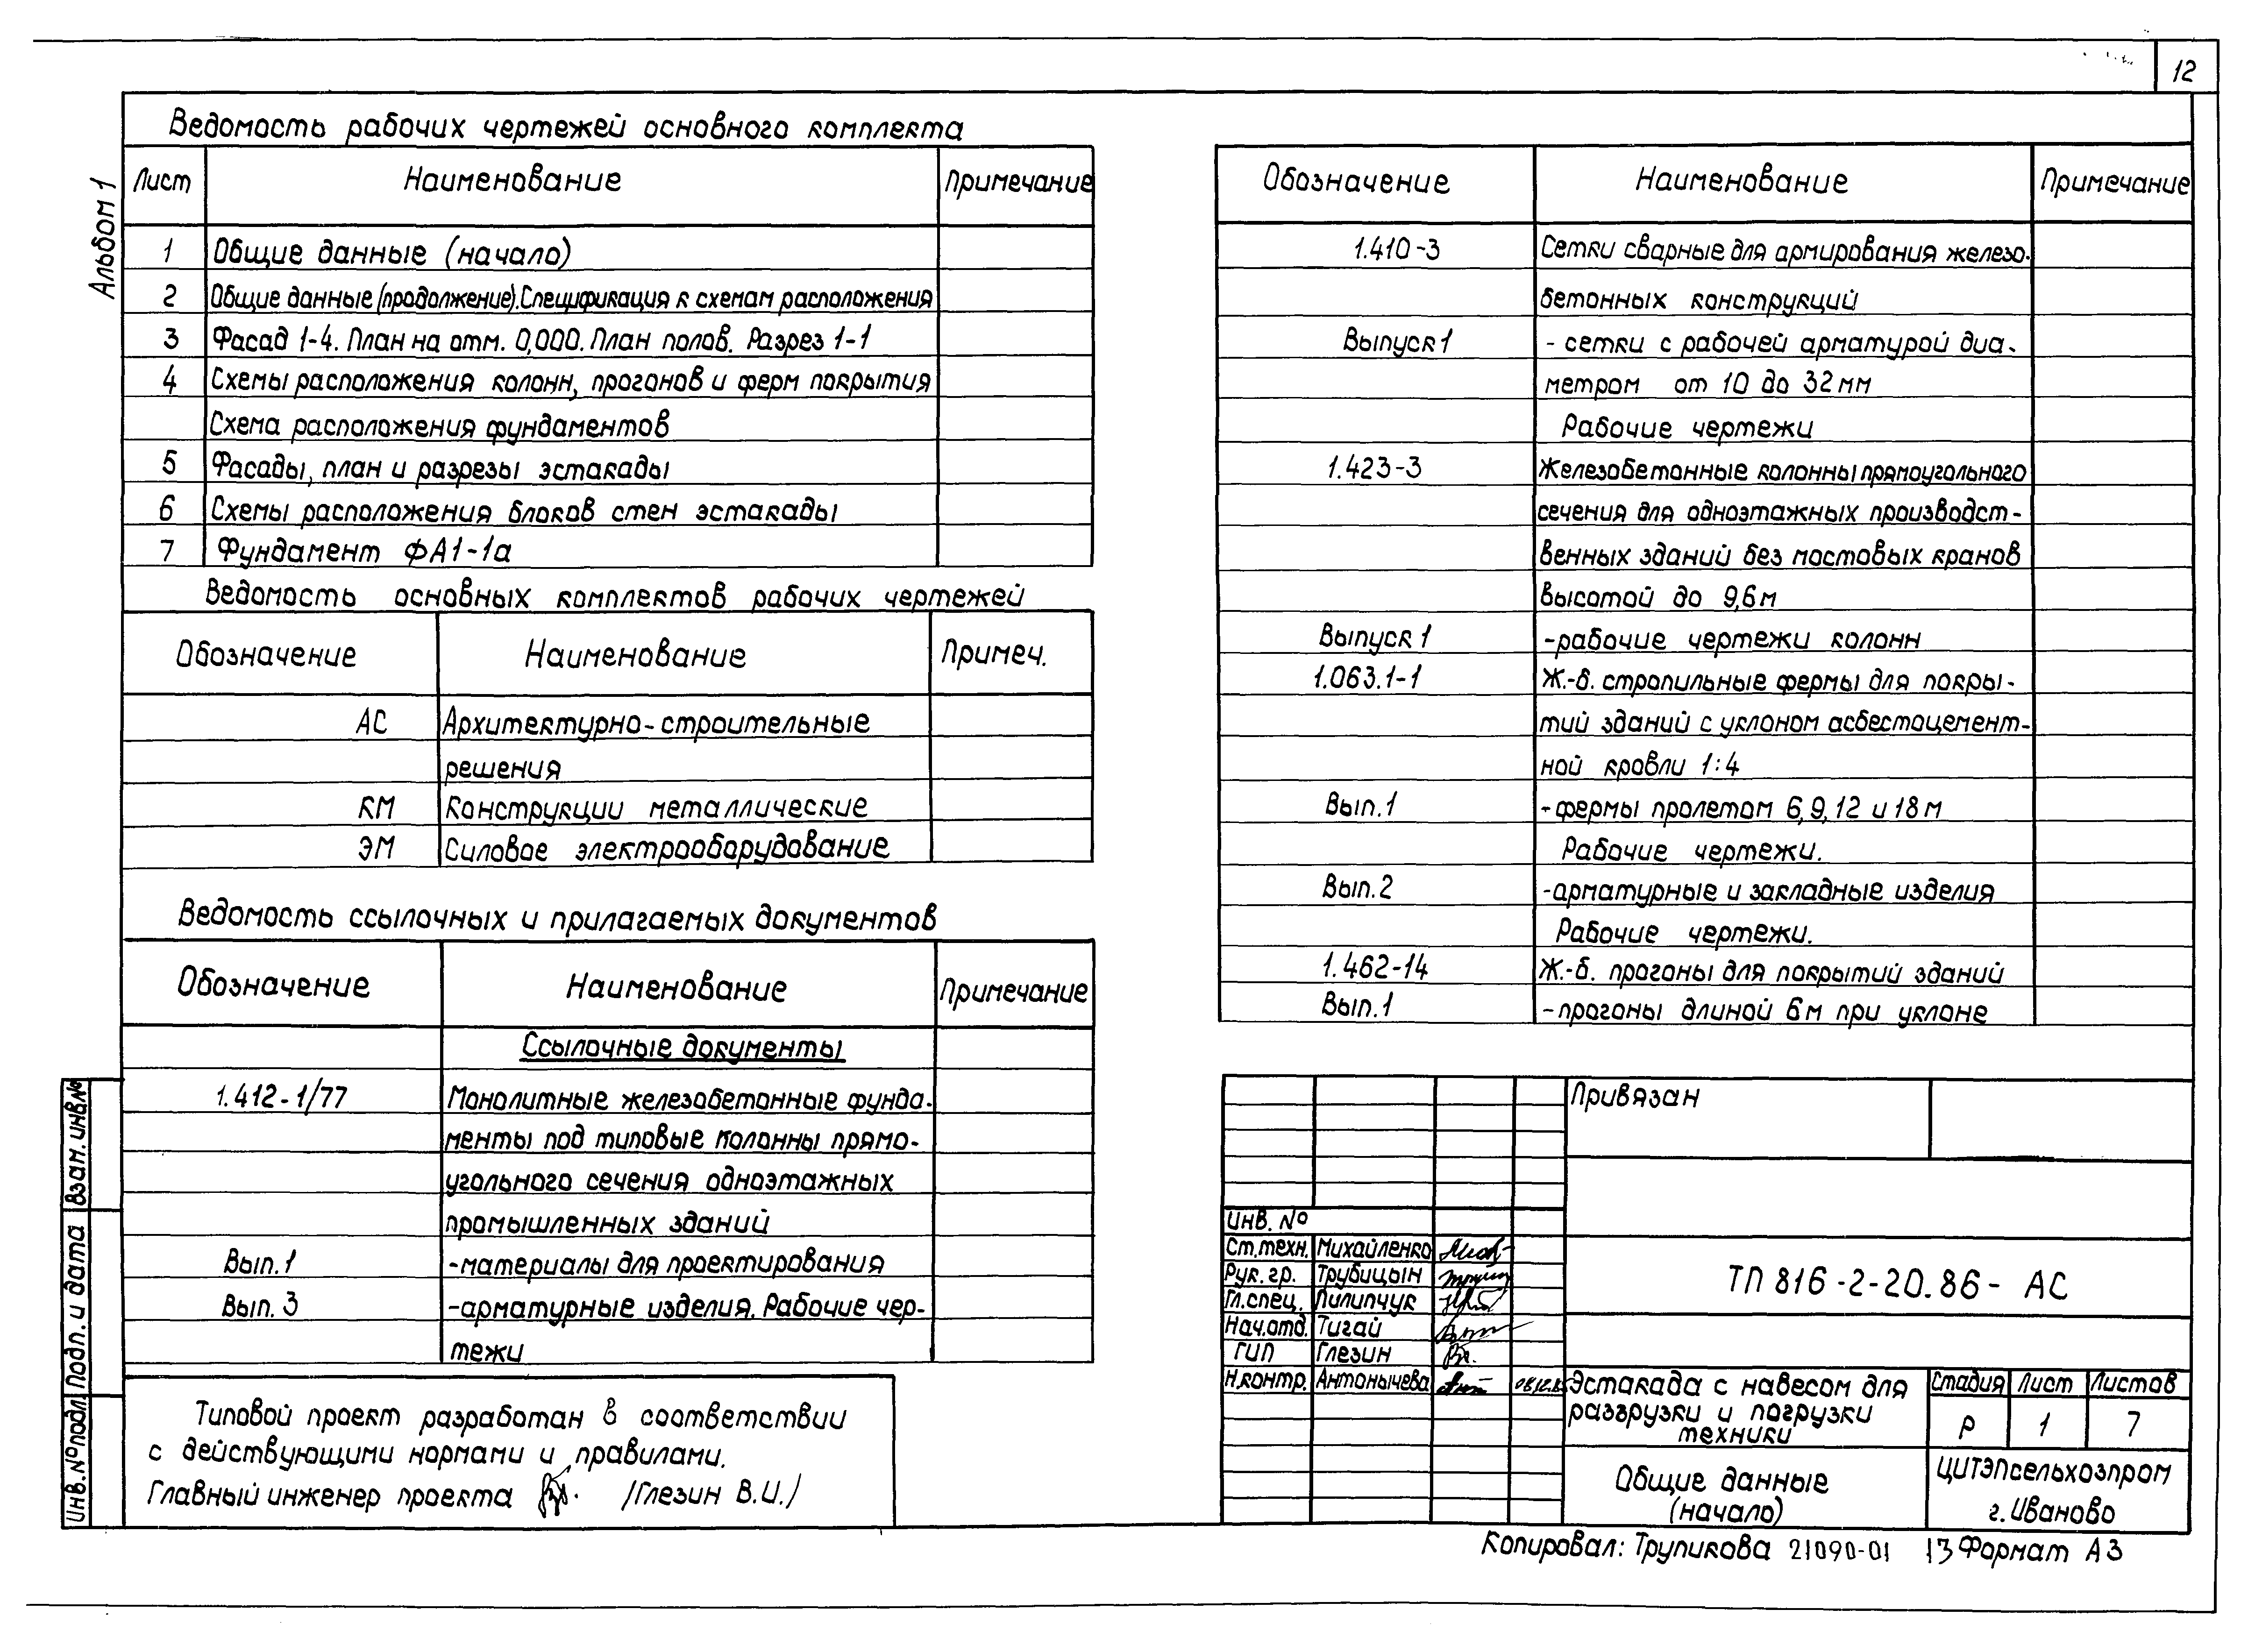 12
Альбом 1
Ведомость рабочих чертежей основного комплекта
Лист Наименование Примечание
1 Общие данные (начало)
2 Общие данные (продолжение). Спецификация к схемам расположения
3 Фасад 1-4. План на отм. 0,000. План полов. Разрез 1-1
4 Схемы расположения колонн, прогонов и ферм покрытия
Схема расположения фундаментов
5 Фасады, план и разрезы эстакады
6 Схемы расположения блоков стен эстакады
7 Фундамент ФА1-1а
Ведомость основных комплектов рабочих чертежей
Обозначение Наименование Примеч.
АС Архитектурно-строительные
решения
КМ Конструкции металлические
ЭМ Силовое электрооборудование
Ведомость ссылочных и прилагаемых документов
Обозначение Наименование Примечание
Ссылочные документы
1.412-1/77 Монолитные железобетонные фунда-
менты под типовые колонны прямо-
угольного сечения одноэтажных
промышленных зданий
Вып. 1 -материалы для проектирования
Вып. 3 -арматурные изделия. Рабочие чер-
тежи
Типовой проект разработан в соответствии
с действующими нормами и правилами.
Главный инженер проекта /Глезин В.И./
Взам. инв.№
Подп. и дата
Инв. № подл.
Обозначение Наименование Примечание
1.410-3 Сетки сварные для армирования железо-
бетонных конструкций
Выпуск 1 - сетки с рабочей арматурой диа-
метром от 10 до 32 мм
Рабочие чертежи
1.423-3 Железобетонные колонны прямоугольного
сечения для одноэтажных производст-
венных зданий без мостовых кранов
высотой до 9,6 м
Выпуск 1 -рабочие чертежи колонн
1.063.1-1 Ж.-б. стропильные фермы для покры-
тий зданий с уклоном асбестоцемент-
ной кровли 1:4
Вып. 1 -фермы пролетом 6, 9, 12 и 18 м
Рабочие чертежи.
Вып. 2 -арматурные и закладные изделия
Рабочие чертежи.
1.462-14 Ж.-б. прогоны для покрытий зданий
Вып. 1 -прогоны длиной 6 м при уклоне
Привязан
Инв. №
Ст.техн. Михайленко
Рук. гр. Трубицын
Гл.спец. Пилипчук
Нач.отд. Тигай
ГИП Глезин
Н.контр. Антонычева
ТП 816-2-20.86- АС
Эстакада с навесом для
разгрузки и погрузки
техники
Стадия Лист Листов
Р 1 7
Общие данные
(начало)
ЦИТЭПсельхозпром
г. Иваново
Копировал: Трупикова 21090-01 13 Формат А3